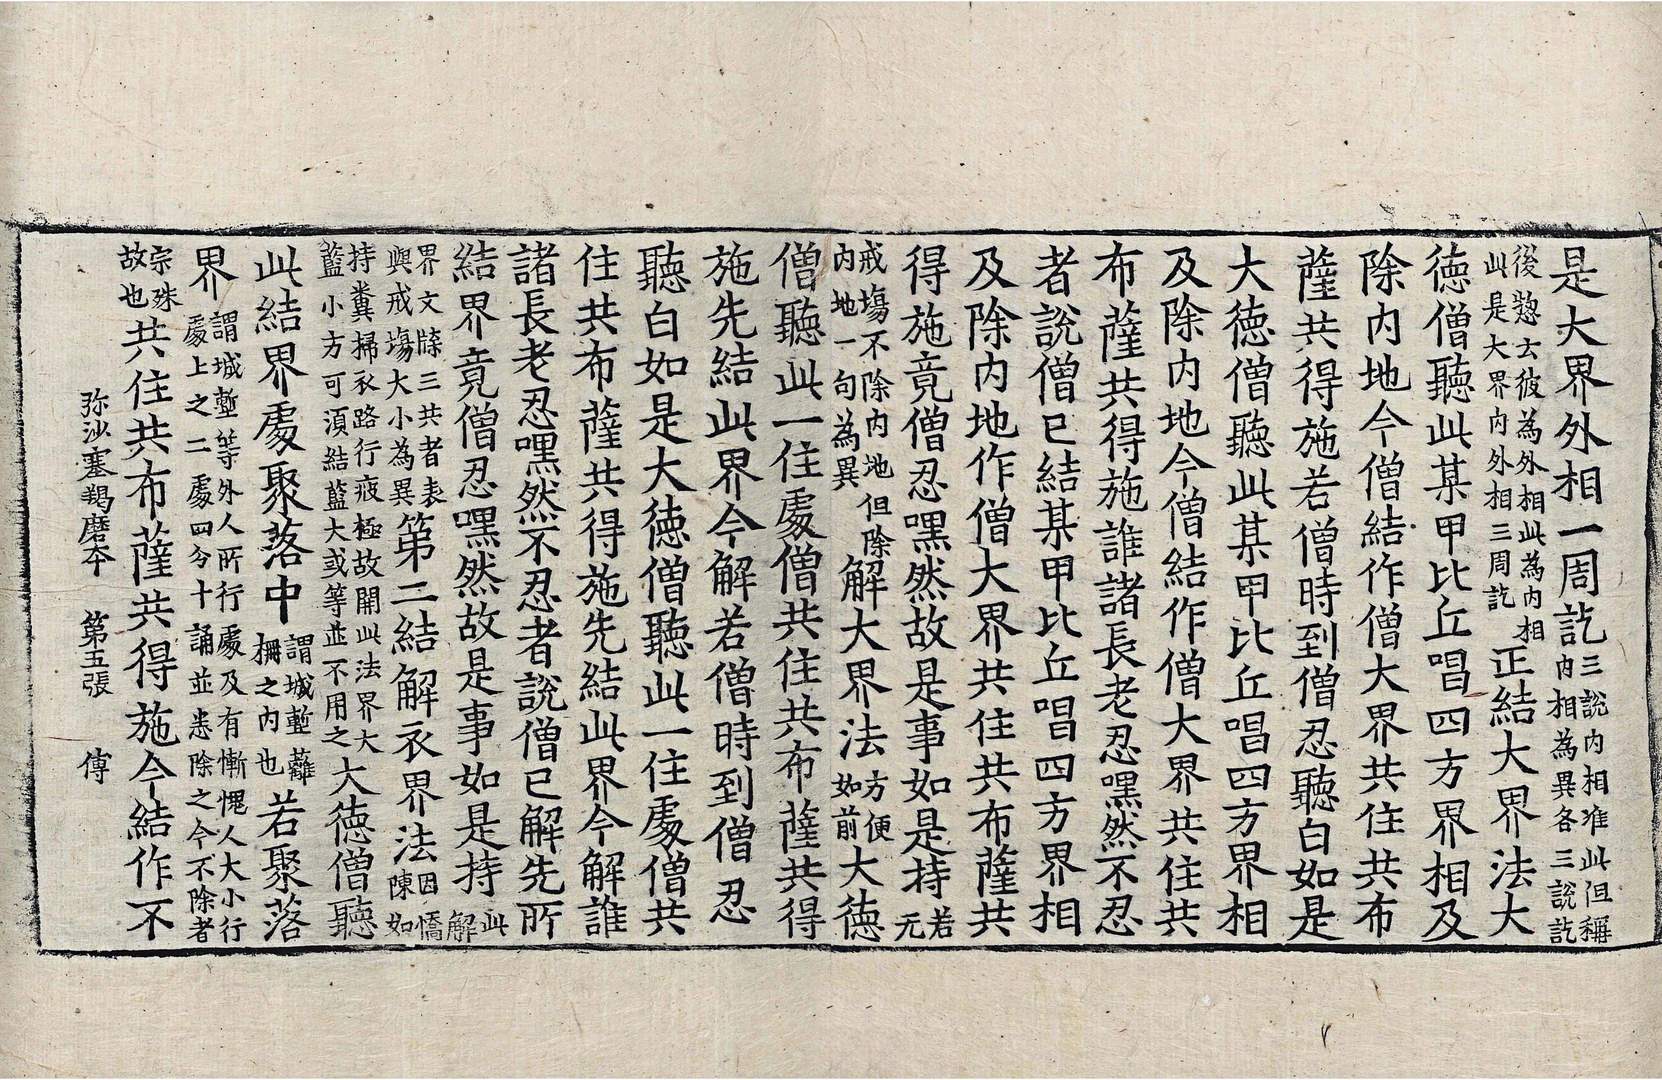 是大界外相一周訖三說內相准此但稱內相為異各三說訖
後愬去彼為外相此為內相此是大界內外相三周訖正結大界法大
德僧聽此某甲比丘唱四方界相及
除內地今僧結作僧大界共住共布
薩共得施若僧時到僧忍聽白如是
大德僧聽此某甲比丘唱四方界相
及除內地今僧結作僧大界共住共
布薩共得施誰諸長老忍嘿然不忍
者說僧已結某甲比丘唱四方界相
及除內地作僧大界共住共布薩共
得施竟僧忍嘿然故是事如是持若无
戒場不除內地但除內地一句為異解大界法方便如前大德
僧聽此一住處僧共住共布薩共得
施先結此界今解若僧時到僧忍
聽白如是大德僧聽此一住處僧共
住共布薩共得施先結此界今解誰
諸長老忍嘿然不忍者說僧已解先所
結界竟僧忍嘿然故是事如是持此解
界文牒三共者表與戒場大小為異第二結解衣界法因憍陳如
持糞掃衣路行疲極故開此法界大藍小方可湏結藍大或等並不用之大德僧聽
此結界處聚落中謂城塹蘺柵之內也若聚落
界謂城塹等外人所行處及有慚愧人大小行處上之二處四分十誦並悉除之今不除者
宗殊故也共住共布薩共得施今結作不
弥沙塞羯磨本 第五張 傅